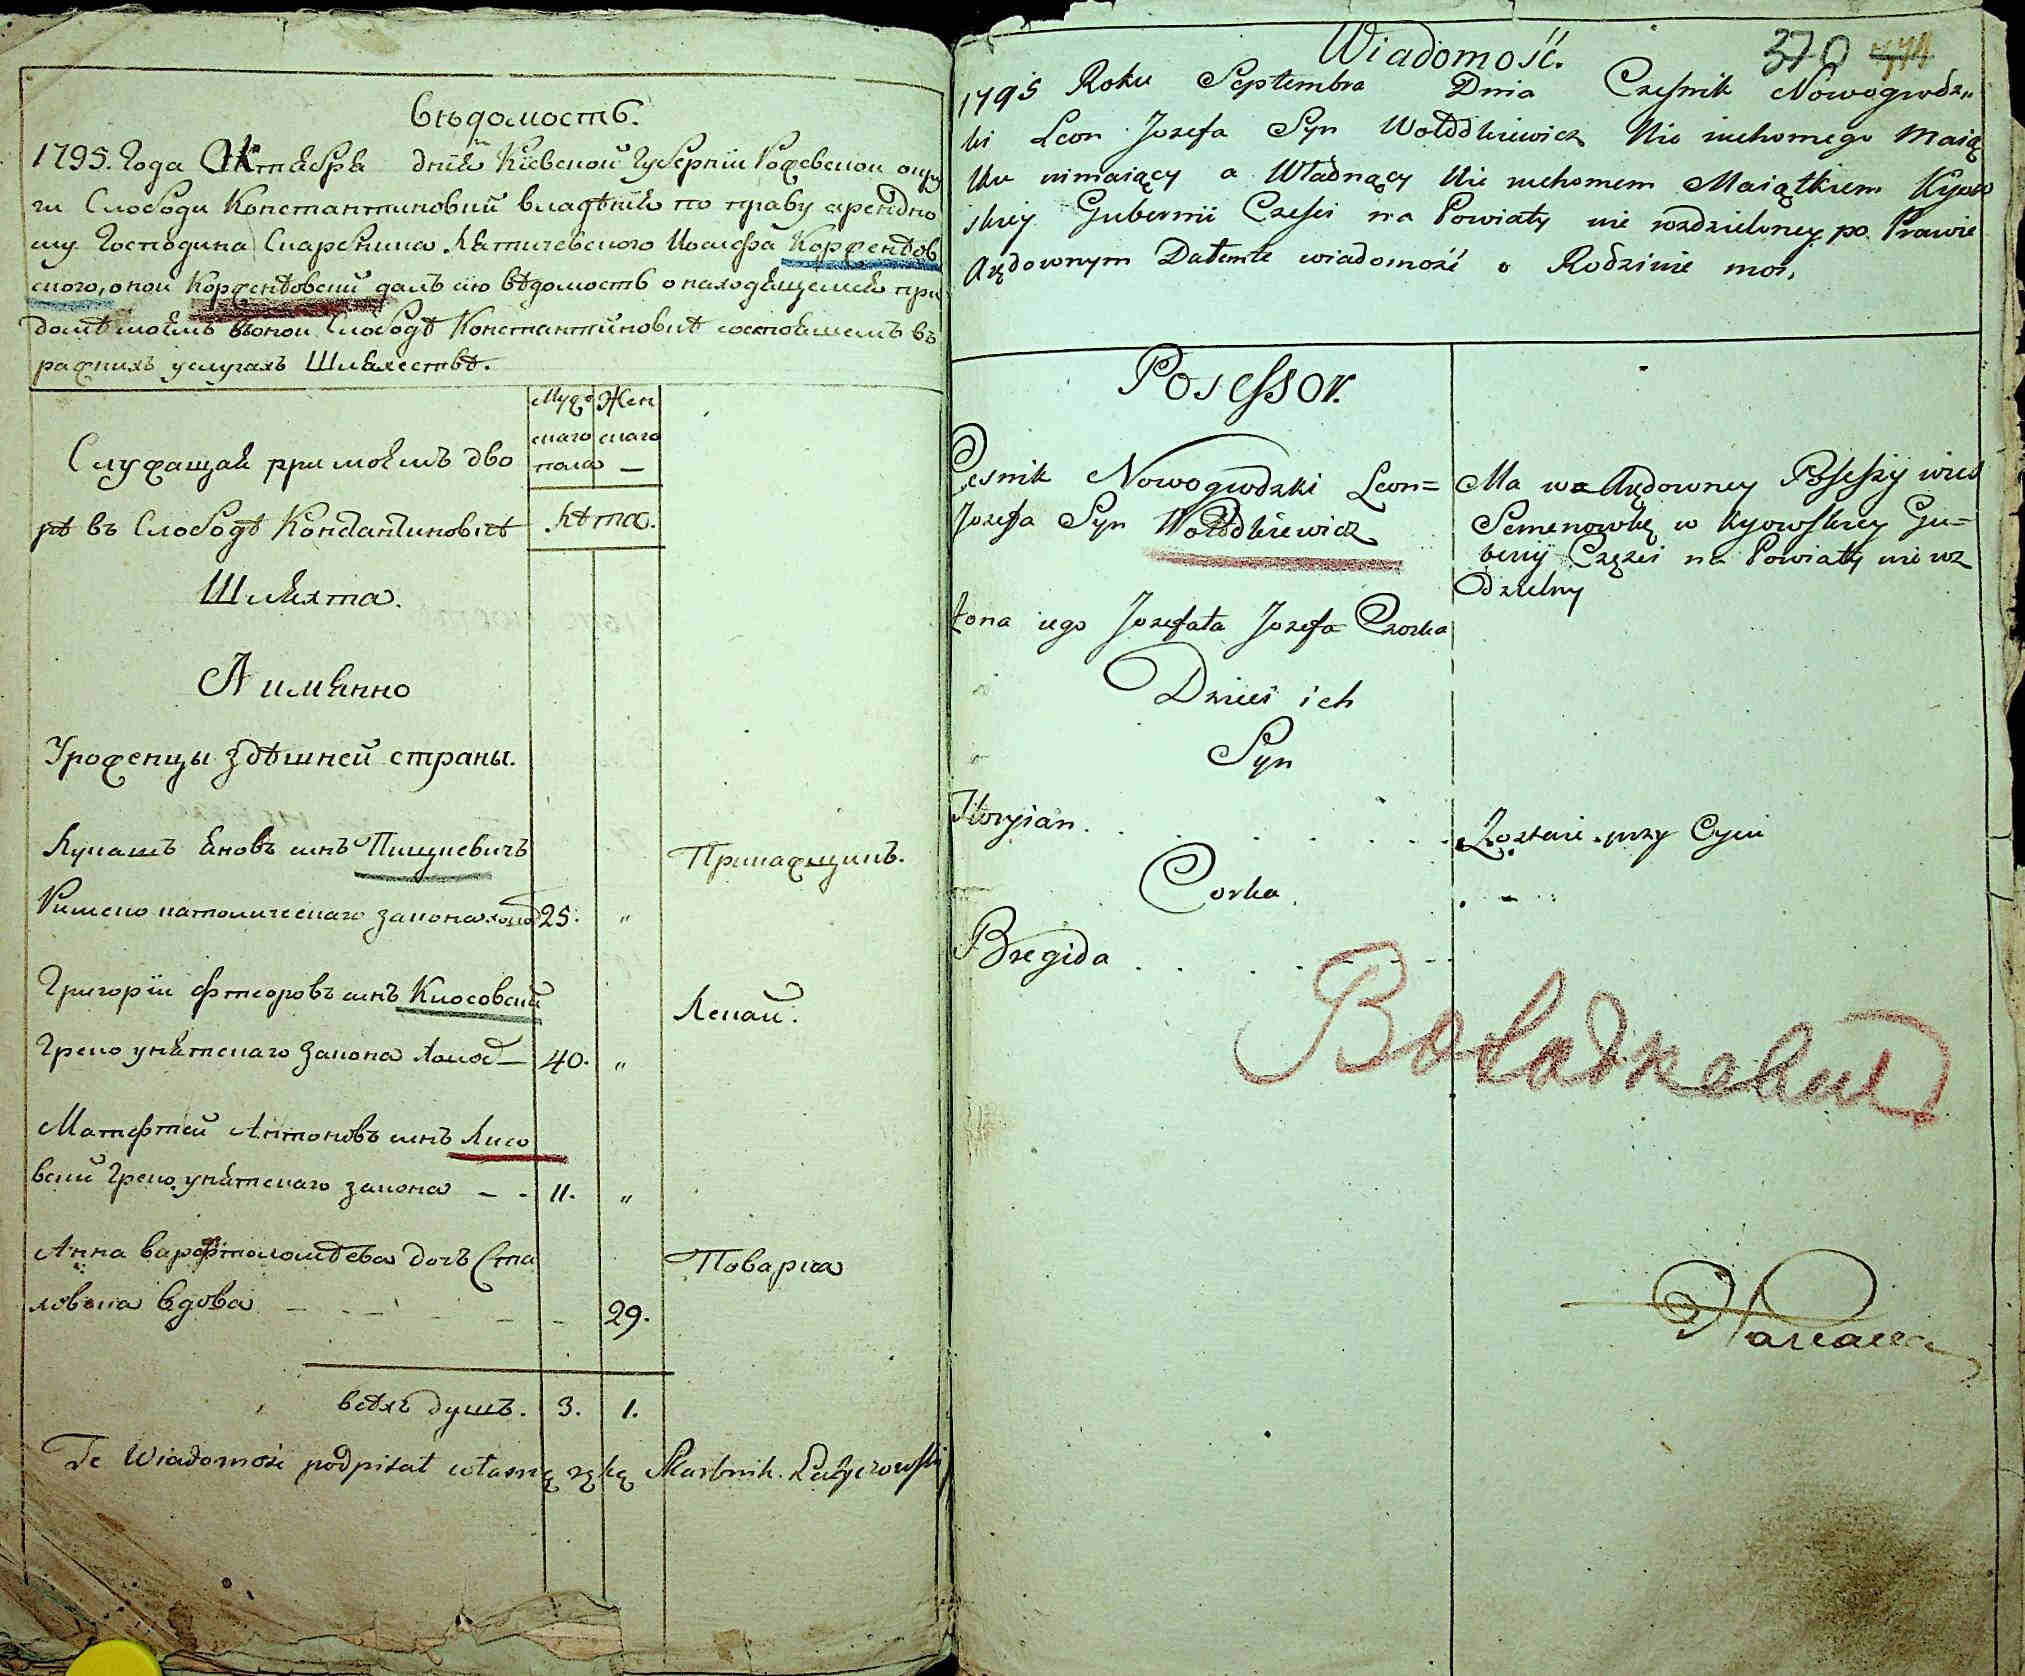 Вѣдомость.
1795. Года Октября дня Кіевской Губерніи
ги Слободи Константиновки владѣнія по праву арендно
му Господина Скарбника Лятичевского Иосифа Корженѣов
ского, оной Корженѣовский далъ сию вѣдомость о находящемся при
домѣ моемъ въ оной Слободѣ Константиновкѣ состоящемъ въ
разнихъ услугахъ Шляхествѣ.
Служащая при моемъ дво
рѣ въ Слободѣ Константиновкѣ
Шляхта.
А имянно
Уроженцы здѣшней страны.
Муж
скаго
пола
Жен
скаго
—
Лѣта.
Лукашъ Яновъ синъ Пицкевичъ
Римско католическаго закона холос 25. „
Прикащикъ.
Григорій Фтеоровъ синъ Киосовский
Греко унѣтскаго закона холос — 40. „
Лекай.
Матфтей Антоновъ синъ Лисо
вский Греко унѣтскаго закона — - 11. „
Анна Варфтоломѣева дочъ Ста
вдова 29.
Поварка
всѣхъ душъ. 3. 1.
Te Wiadomość podpisał własną ręką Skarbnik Latyczowski
Wiadomość.
370
1795 Roku Septembra Dnia Czesnik Nowogrodz„
ki Leon Jozefa Syn Wołodkiewicz Nie ruchomego Maią
tku nimaiący a Władnący Nie ruchomem Maiątkiem Kyow
skiey Gubernii Części na Powiaty nie rozdzieloney po Prawie
Arędownym Datemte wiadomość o Rodzinie moi,
Posessor.
Cesnik Nowogrodzki Leon=
Jozefa Syn Wołodkiewicz
Ma w Arędowney Possessyi wieś
Semenowkę w Kyowskiey Gu=
berny Części na Powiaty nie roz
dzielny
Żona iego Jozefata Jozefa Czorka
Dzieci ich
Syn
Floryian
Zostaie przy Oycu
Corka
Bregida
Воладкевич